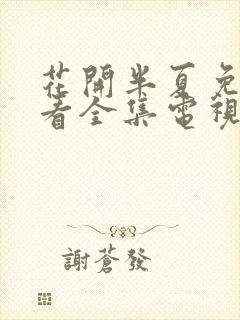 花開半夏免
看全集電視
謝蒼發